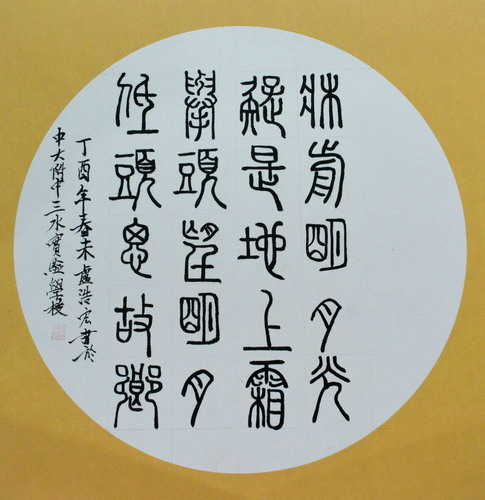 牀前明月光
疑是地上霜
舉頭望明月
低頭思故鄉
丁酉年春末盧浩宏書於
中大附中三水實驗學校